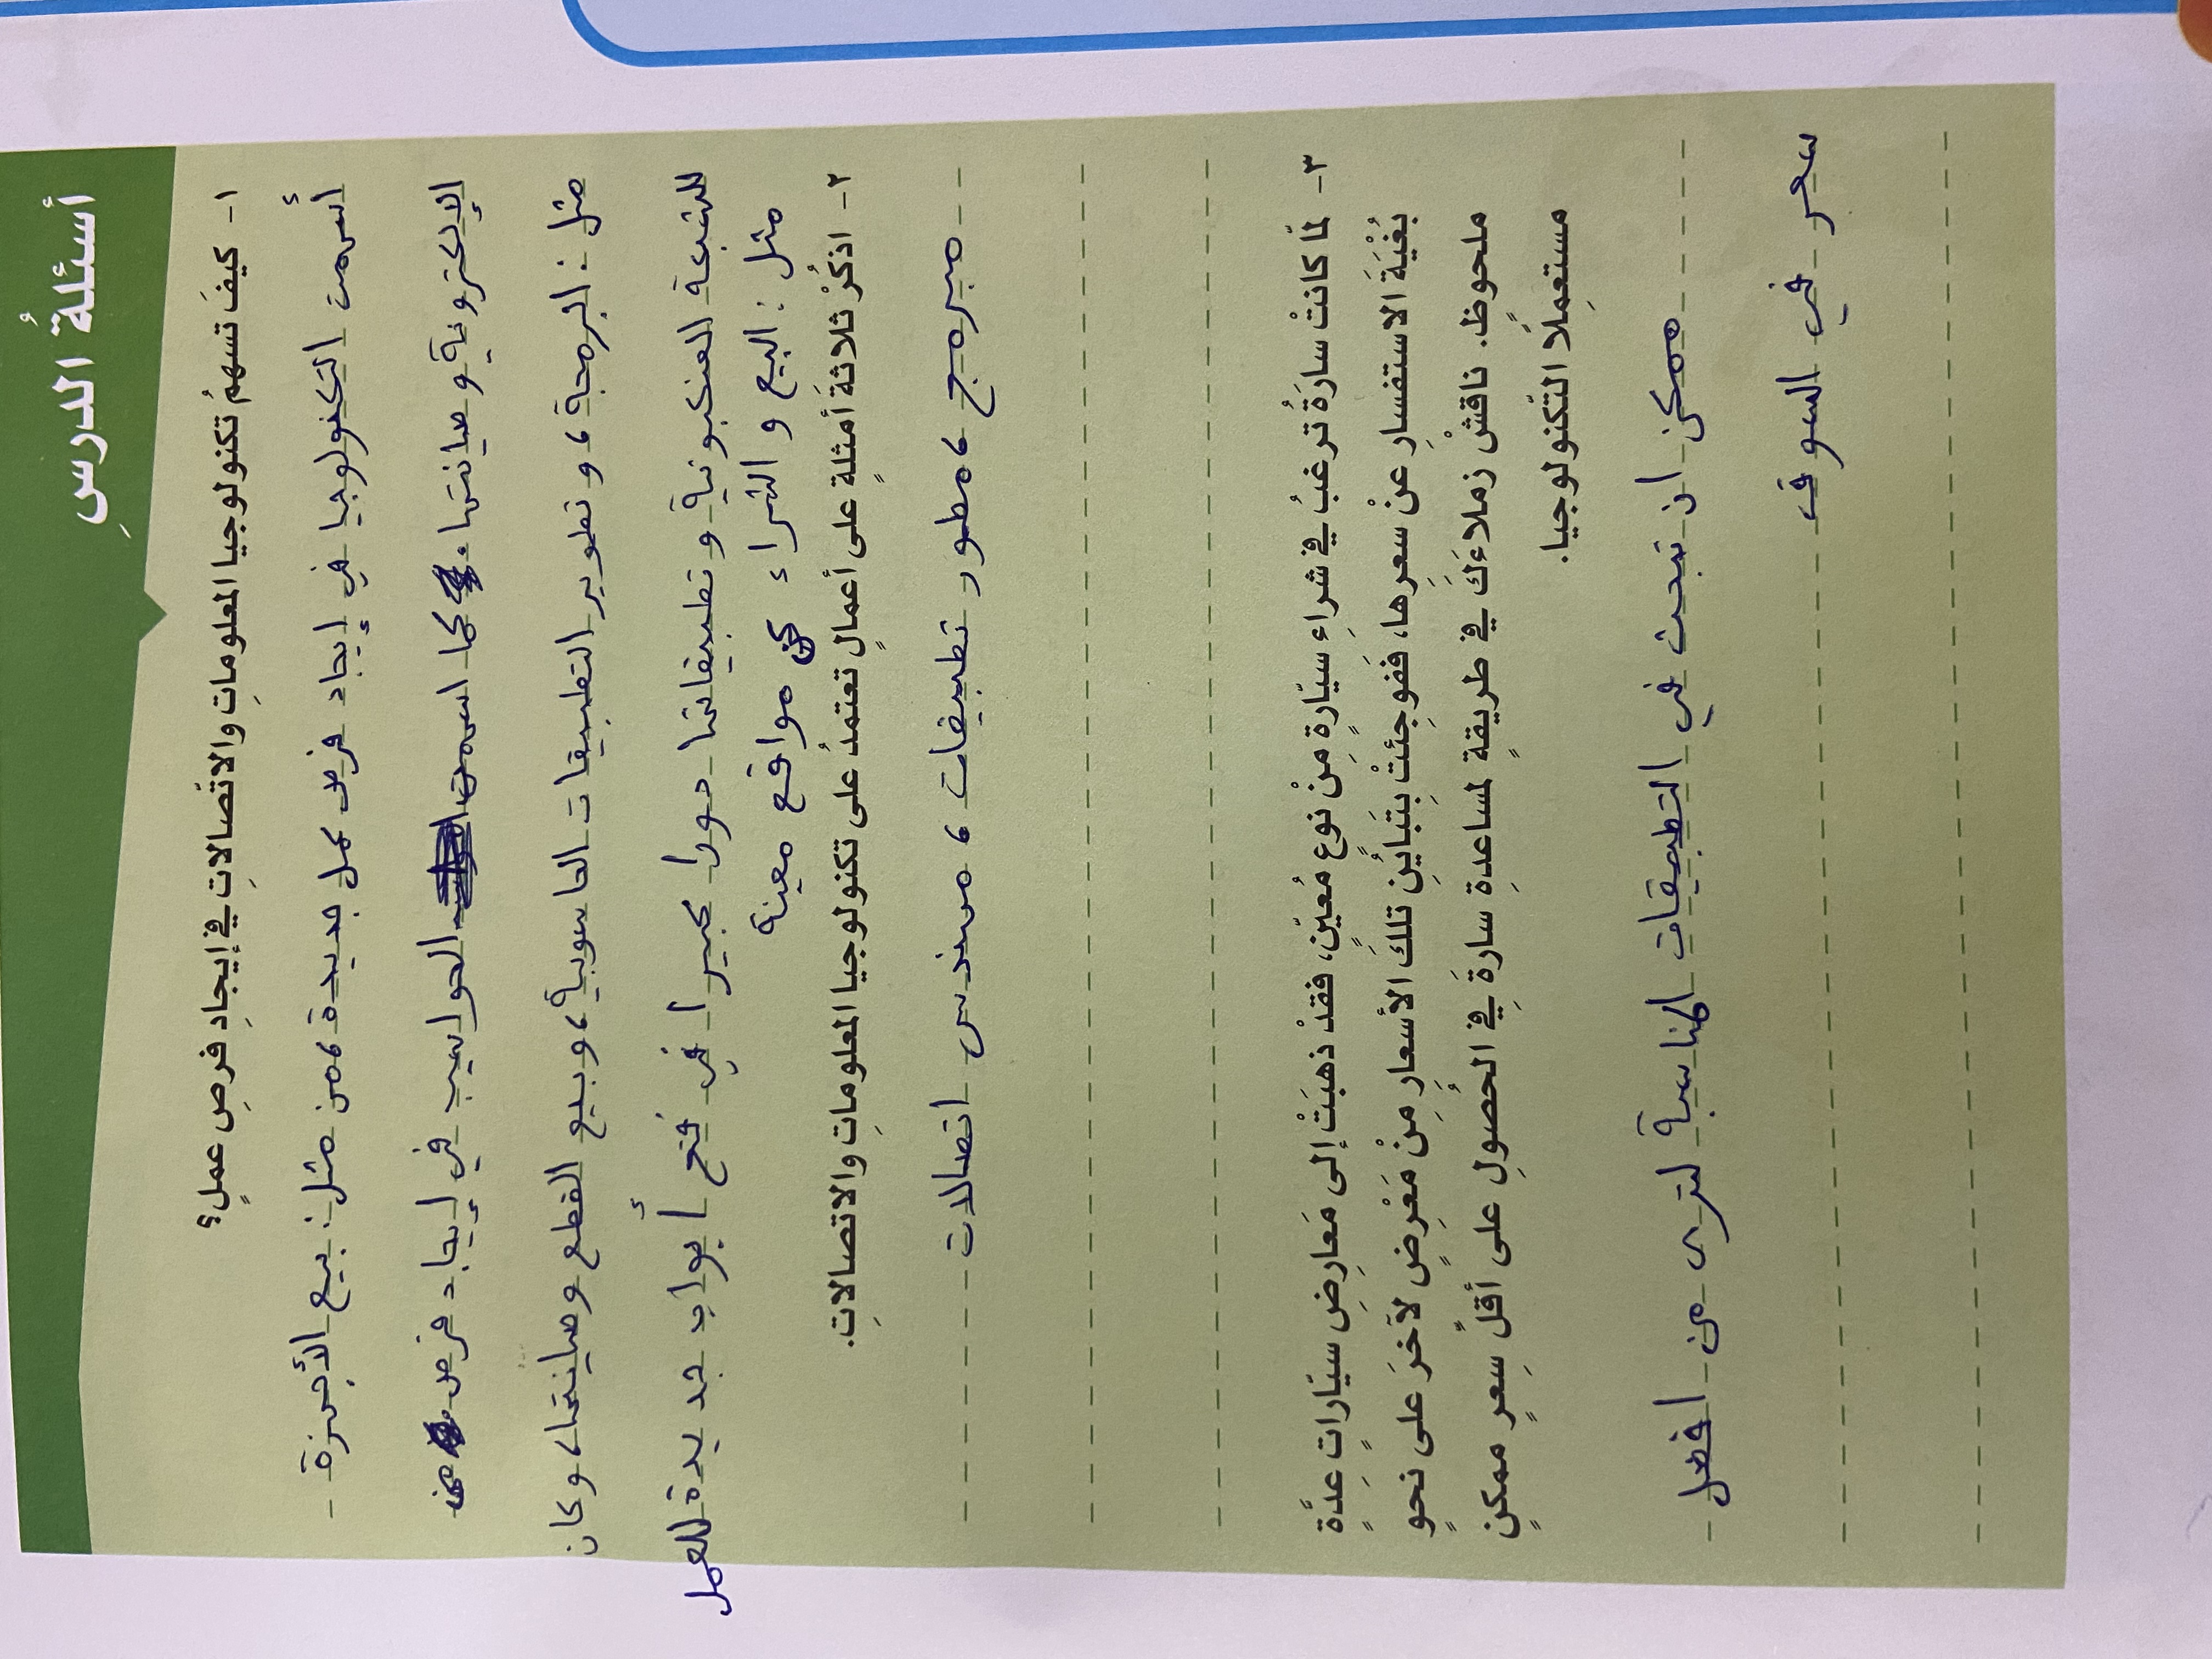 أسئلةُ الدرسِ
١- كيفَ تسهمُ تكنولوجيا المعلوماتِ والاتّصالاتِ في إيجادِ فرصِ عملٍ؟
أسهمت التكنولوجيا في إيجاد فرص عمل جديدة، من مثل: بيع الأجهزة
الإلكترونية و صيانتها. كما اسهمت الحواسيب في إيجاد فرص من
مثل: البرمجة، و تطوير التطبيقات الحاسوبية، وبيع القطع وصيانتها، وكان
للشبكة العنكبوتية و تطبيقاتها دورا كبيرا في فتح أبواب جديدة للعمل
مثل: البيع و الشراء مواقع معينة
٢- اذكُرْ ثلاثةَ أمثلةٍ على أعمالٍ تعتمدُ على تكنولوجيا المعلوماتِ والاتصالاتِ.
مبرمج، مطور تطبيقات، مهندس اتصالات
٣- لمّا كانتْ سارَةُ ترغبُ في شراءِ سيّارةٍ مِنْ نوعٍ مُعيّنٍ، فقدْ ذهبَتْ إلى مَعارِضِ سيّاراتٍ عِدَّةٍ
بُغْيَةَ الاستفسارِ عنْ سعرِها، ففوجِئتْ بِتَبايُنِ تلكَ الأسعارِ مِنْ مَعْرِضٍ لآخرَ على نحوٍ
ملحوظ. ناقشْ زملاءَكَ في طريقةٍ لمساعدةِ سارةَ في الحُصولِ على أقلِّ سِعرٍ ممكنٍ
مستعمِلًا التّكنولوجيا.
ممكن ان تبحث في التطبيقات المناسبة لترى من افضل
سعر في السوق